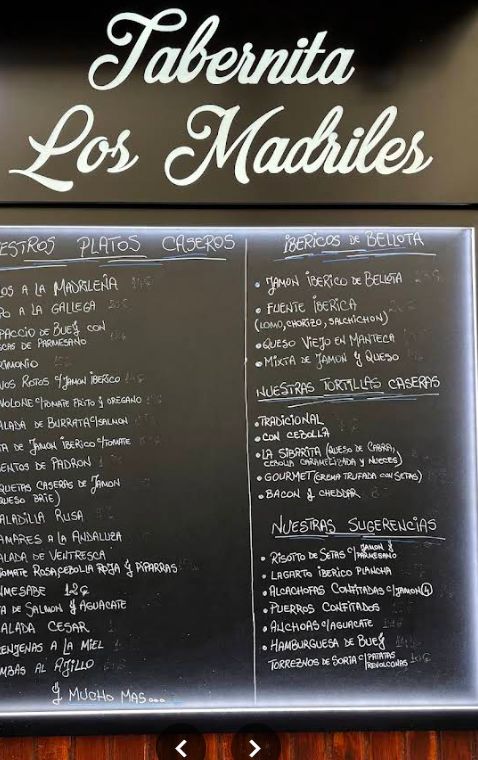 Tabernita
Los Madriles
ESTROS PLATOS CASEROS
OS A LA MADRILEÑA
O A LA GALLEGA
PACCIO DE BUEY CON
CAS DE PARMESANO
RIMONIO
VOS ROTOS C/JAMON IBERICO
VOLONE C/TOMATE FRITO Y OREGANO
ALADA DE BURRATA C/SALMON
TA DE JAMON IBERICO C/TOMATE
IENTOS DE PADRON
QUETAS CASERAS DE JAMON
QUESO BRIE)
ALADILLA RUSA
AMARES A LA ANDALUZA
ALADA DE VENTRESCA
TOMATE ROSA, CEBOLLA ROJA Y PIPARRAS
NMESABE 12€
TA DE SALMON Y AGUACATE
ALADA CESAR
RENJENAS A LA MIEL
MBAS AL AJILLO
Y MUCHO MAS...
IBERICOS DE BELLOTA
• JAMON IBERICO DE BELLOTA
• FUENTE IBERICA
(LOMO, CHORIZO, SALCHICHON)
• QUESO VIEJO EN MANTECA
• MIXTA DE JAMON Y QUESO
NUESTRAS TORTILLAS CASERAS
• TRADICIONAL
• CON CEBOLLA
• LA SIBARITA (QUESO DE CABRA,
CEBOLLA CARAMELIZADA Y NUECES)
• GOURMET (CREMA TRUFADA CON SETAS)
• BACON Y CHEDDAR
NUESTRAS SUGERENCIAS
• RISOTTO DE SETAS C/JAMON Y PARMESANO
• LAGARTO IBERICO PLANCHA
• ALCACHOFAS CONFITADAS C/JAMON (4)
• PUERROS CONFITADOS
• ANCHOAS C/AGUACATE
• HAMBURGUESA DE BUEY
TORREZNOS DE SORIA C/PATATAS REVOLCONAS